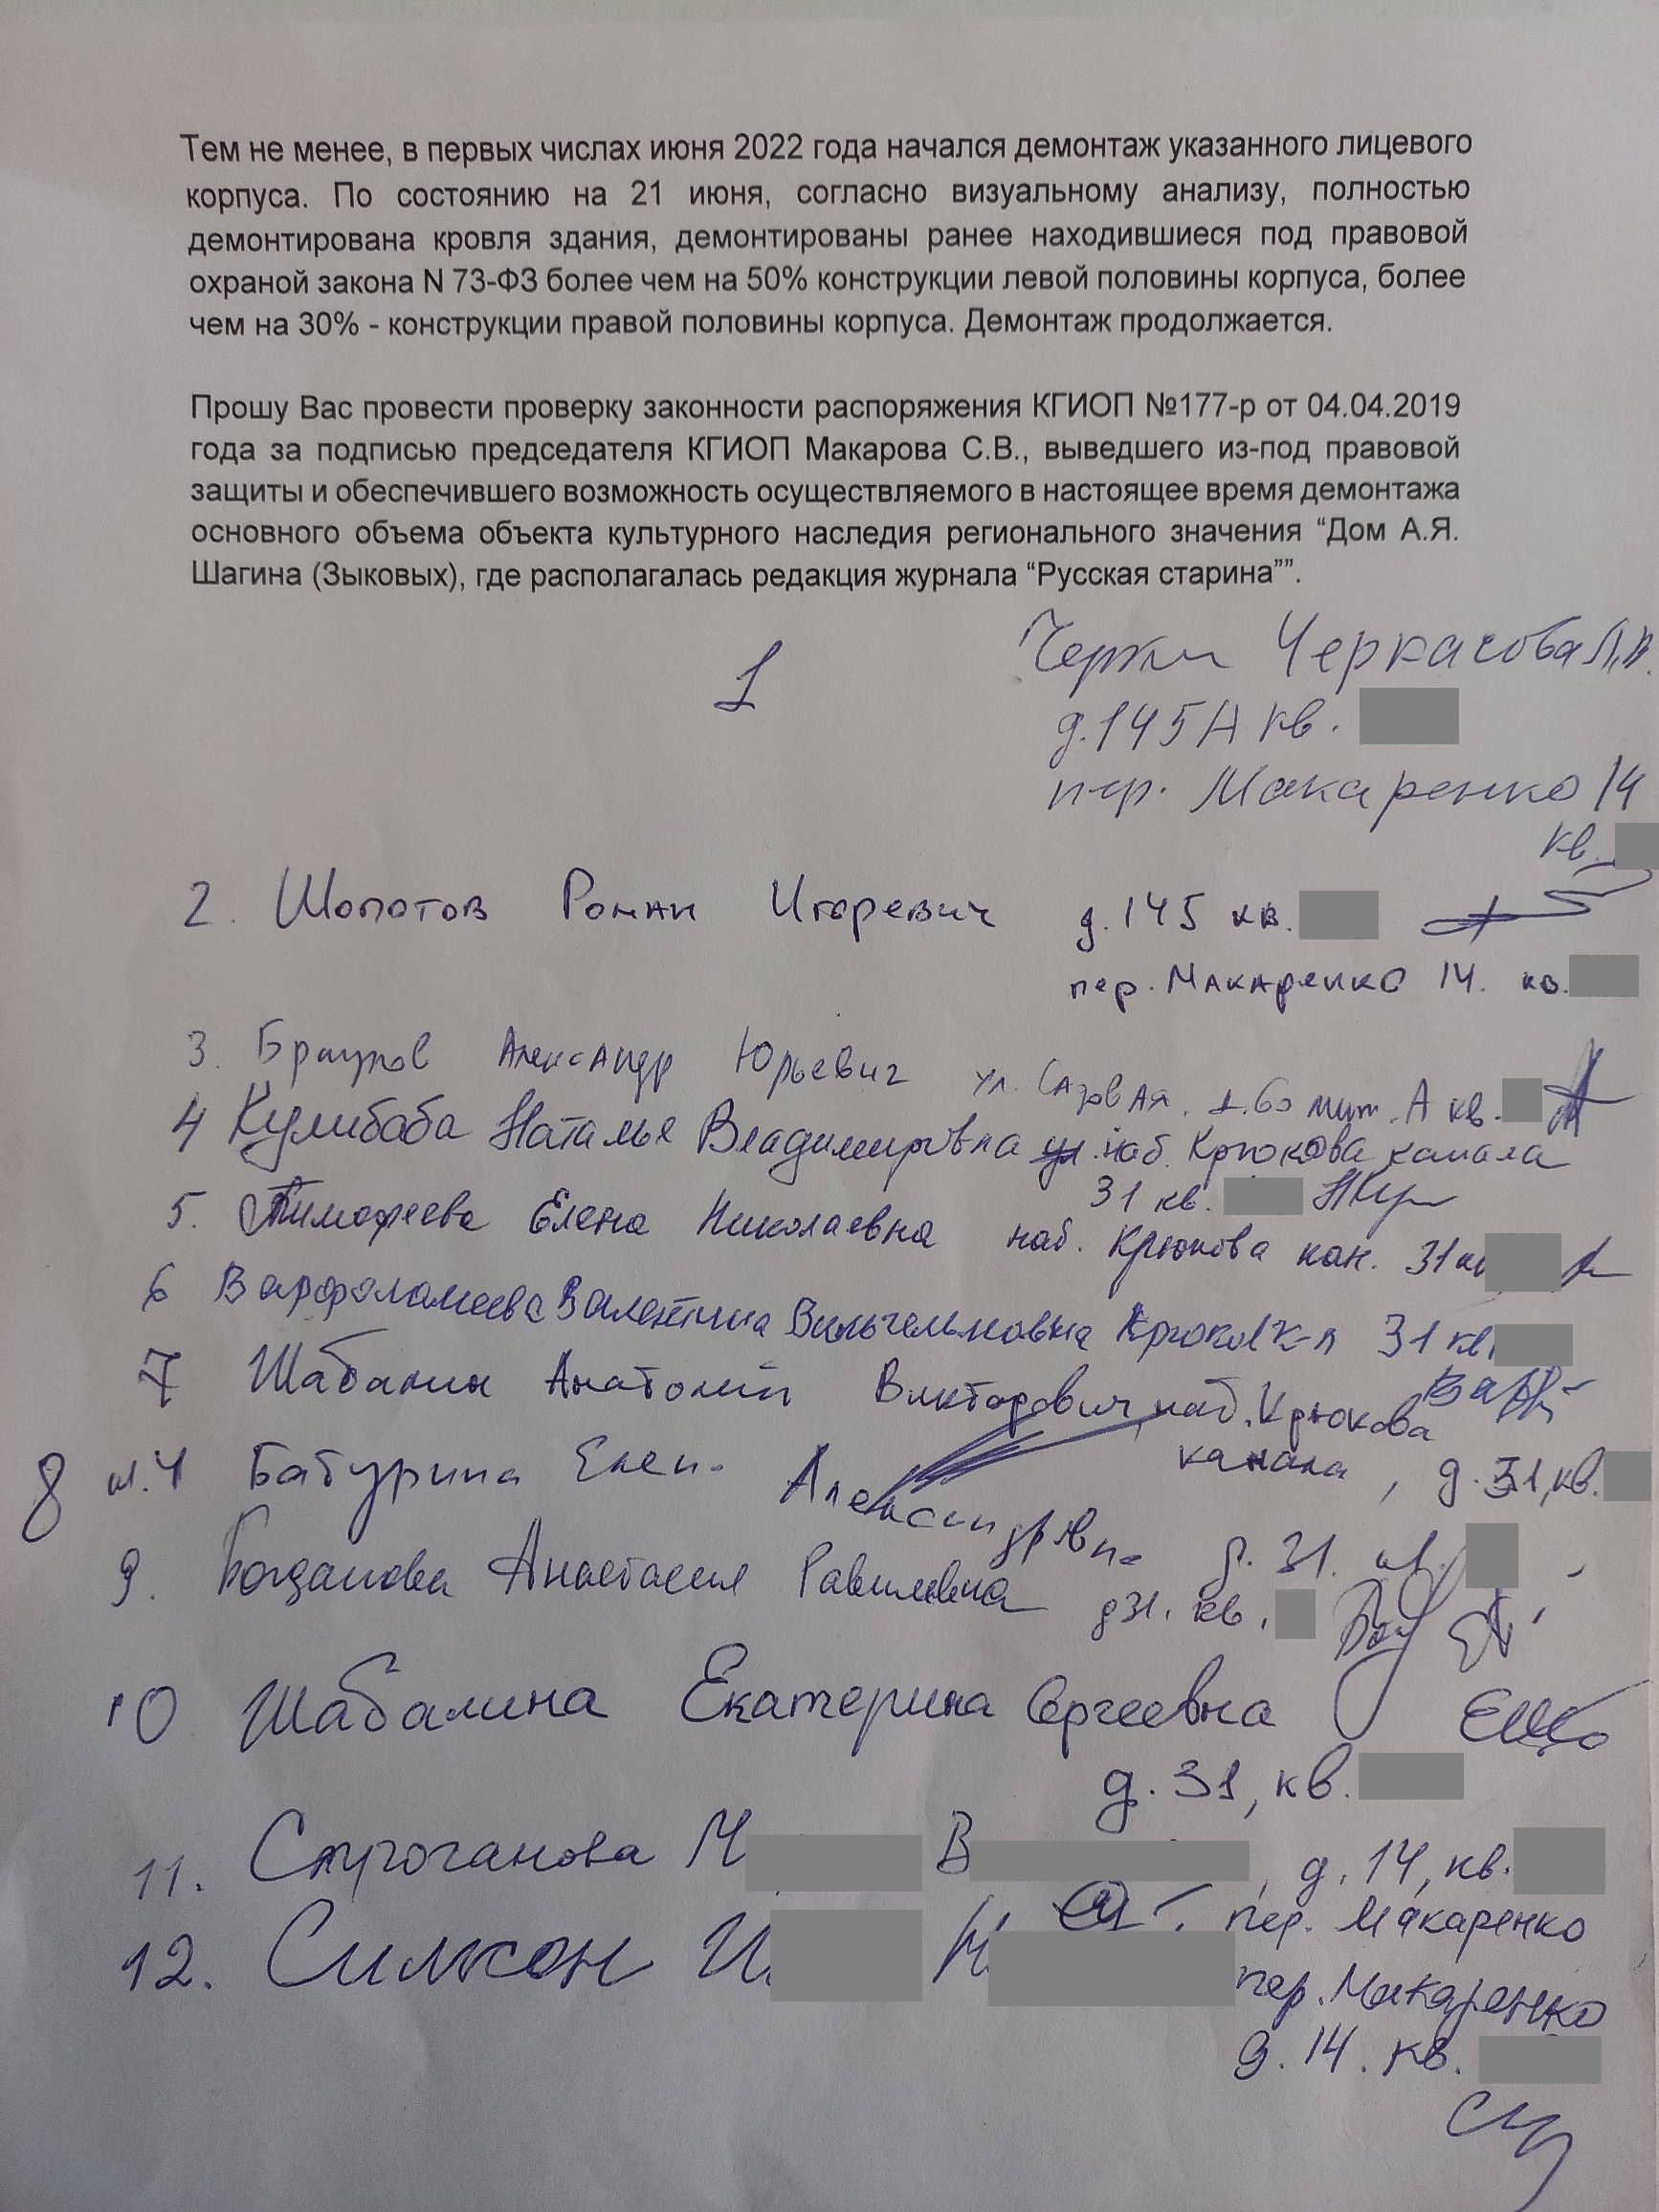 Тем не менее, в первых числах июня 2022 года начался демонтаж указанного лицевого
корпуса. По состоянию на 21 июня, согласно визуальному анализу, полностью
демонтирована кровля здания, демонтированы ранее находившиеся под правовой
охраной закона N 73-ФЗ более чем на 50% конструкции левой половины корпуса, более
чем на 30% - конструкции правой половины корпуса. Демонтаж продолжается.
Прошу Вас провести проверку законности распоряжения КГИОП №177-р от 04.04.2019
года за подписью председателя КГИОП Макарова С.В., выведшего из-под правовой
защиты и обеспечившего возможность осуществляемого в настоящее время демонтажа
основного объема объекта культурного наследия регионального значения “Дом А.Я.
Шагина (Зыковых), где располагалась редакция журнала “Русская старина””.
1 Черкасова
д.145А кв.
пер. Макаренко 14
кв.
2. Шопотов Роман Игоревич д.145 кв.
пер. Макаренко 14. кв.
3. Александр Юрьевич ул. д.60 лит. А кв.
4 Кулибаба Наталья Владимировна наб. Крюкова канала
31 кв.
5. Тимофеева Елена Николаевна наб. Крюкова кан. 31 кв
6 Варфоломеева Валентина Вильгельмовна 31 кв.
7 Шабалин Анатолий Викторович, наб. Крюкова
канала, д. 31, кв.
8 Батурина Елен. Александровна д. 31. кв.
9. Богданова Анастасия Равилевна д 31. кв.
10 Шабалина Екатерина Сергеевна
д. 31, кв.
11. Строганова М В , д. 14, кв.
пер. Макаренко
12. Симкон И.
пер. Макаренко
д. 14. кв.